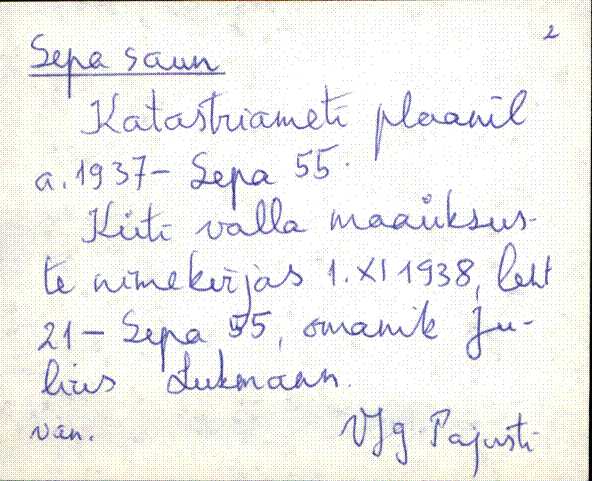 2
Sepa saun
Katastriameti plaanil
a. 1937 - Sepa 55.
Küti valla maaüksus-
te nimekirjas 1. XI 1938, leht
21 - Sepa 55, omanik Ju-
lius Lukmann.
van. VJg Pajusti